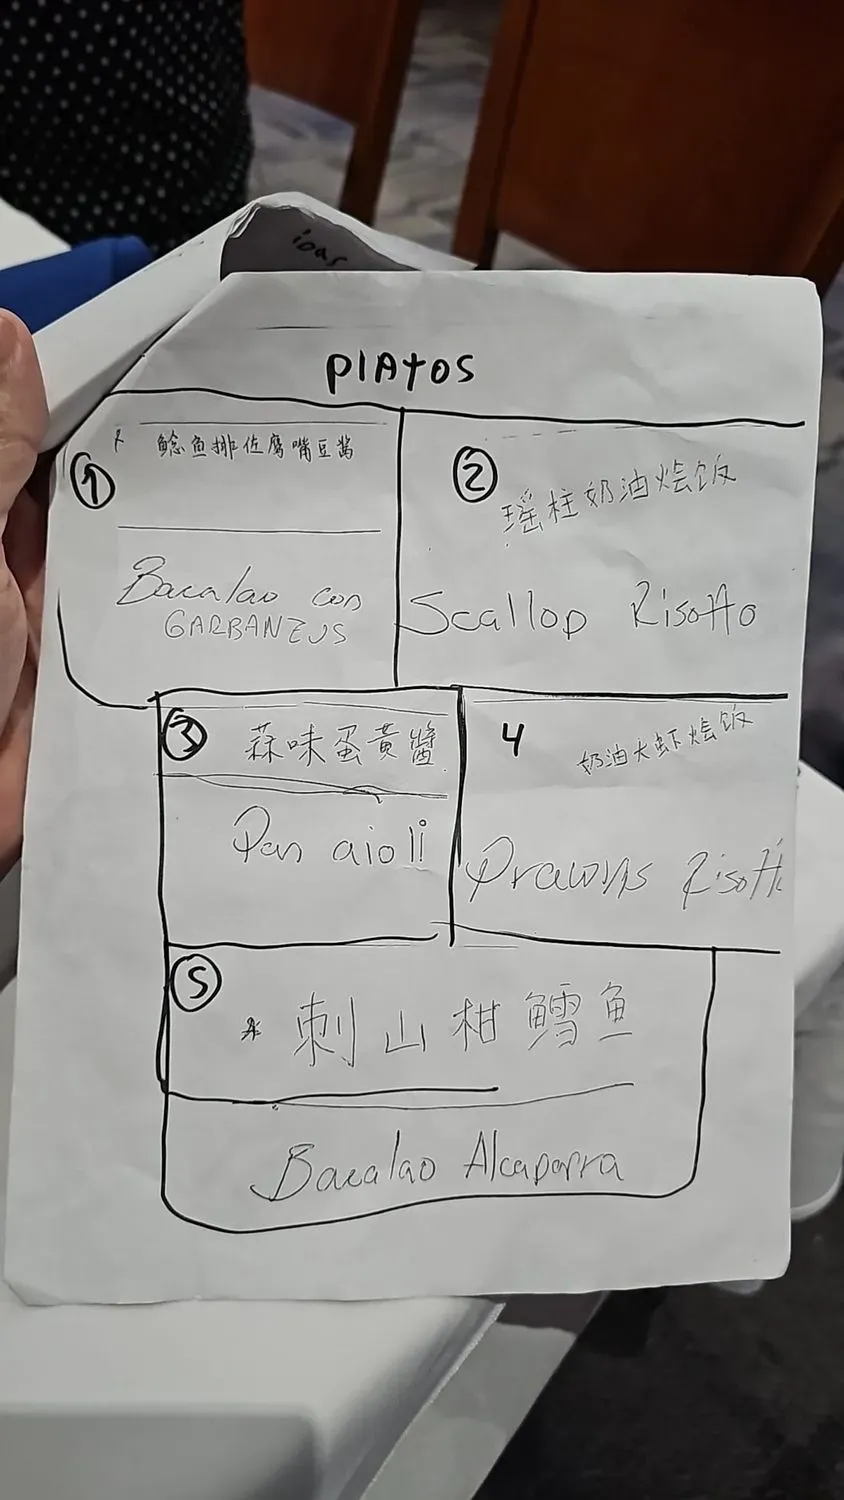 ioas
PlAtos
1
鲶鱼排佐鹰嘴豆酱
Bacalao con
GARBANZUS
2
瑶柱奶油烩饭
Scallop Risotto
3
蒜味蛋黄醬
Pan aioli
4
奶油大虾烩饭
Prawns Risotto
5
刺山柑鱈鱼
Bacalao Alcaparra